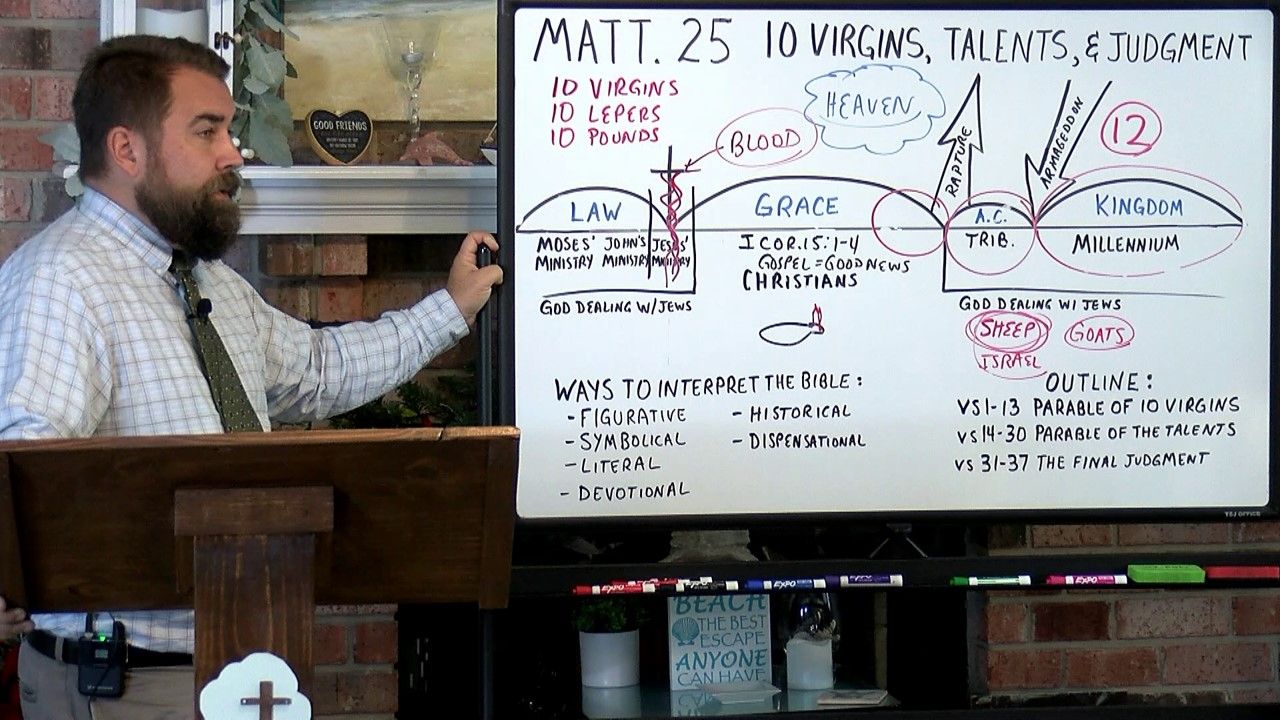 MATT. 25 10 VIRGINS, TALENTS, & JUDGMENT
10 VIRGINS
10 LEPERS
10 POUNDS
BLOOD
HEAVEN
RAPTURE
ARMAGEDDON
12
LAW
GRACE
A.C.
KINGDOM
MOSES' JOHN'S JESUS'
MINISTRY MINISTRY MINISTRY
I COR. 15:1-4
GOSPEL = GOOD NEWS
CHRISTIANS
TRIB.
MILLENNIUM
GOD DEALING W/ JEWS
GOD DEALING W/ JEWS
SHEEP GOATS
ISRAEL
WAYS TO INTERPRET THE BIBLE:
- FIGURATIVE
- SYMBOLICAL
- LITERAL
- DEVOTIONAL
- HISTORICAL
- DISPENSATIONAL
OUTLINE:
VS 1-13 PARABLE OF 10 VIRGINS
VS 14-30 PARABLE OF THE TALENTS
VS 31-37 THE FINAL JUDGMENT
GOOD FRIENDS
EXPO
EXPO
EXPO
EXPO
EXPO
BEACH
THE BEST
ESCAPE
ANYONE
CAN HAVE